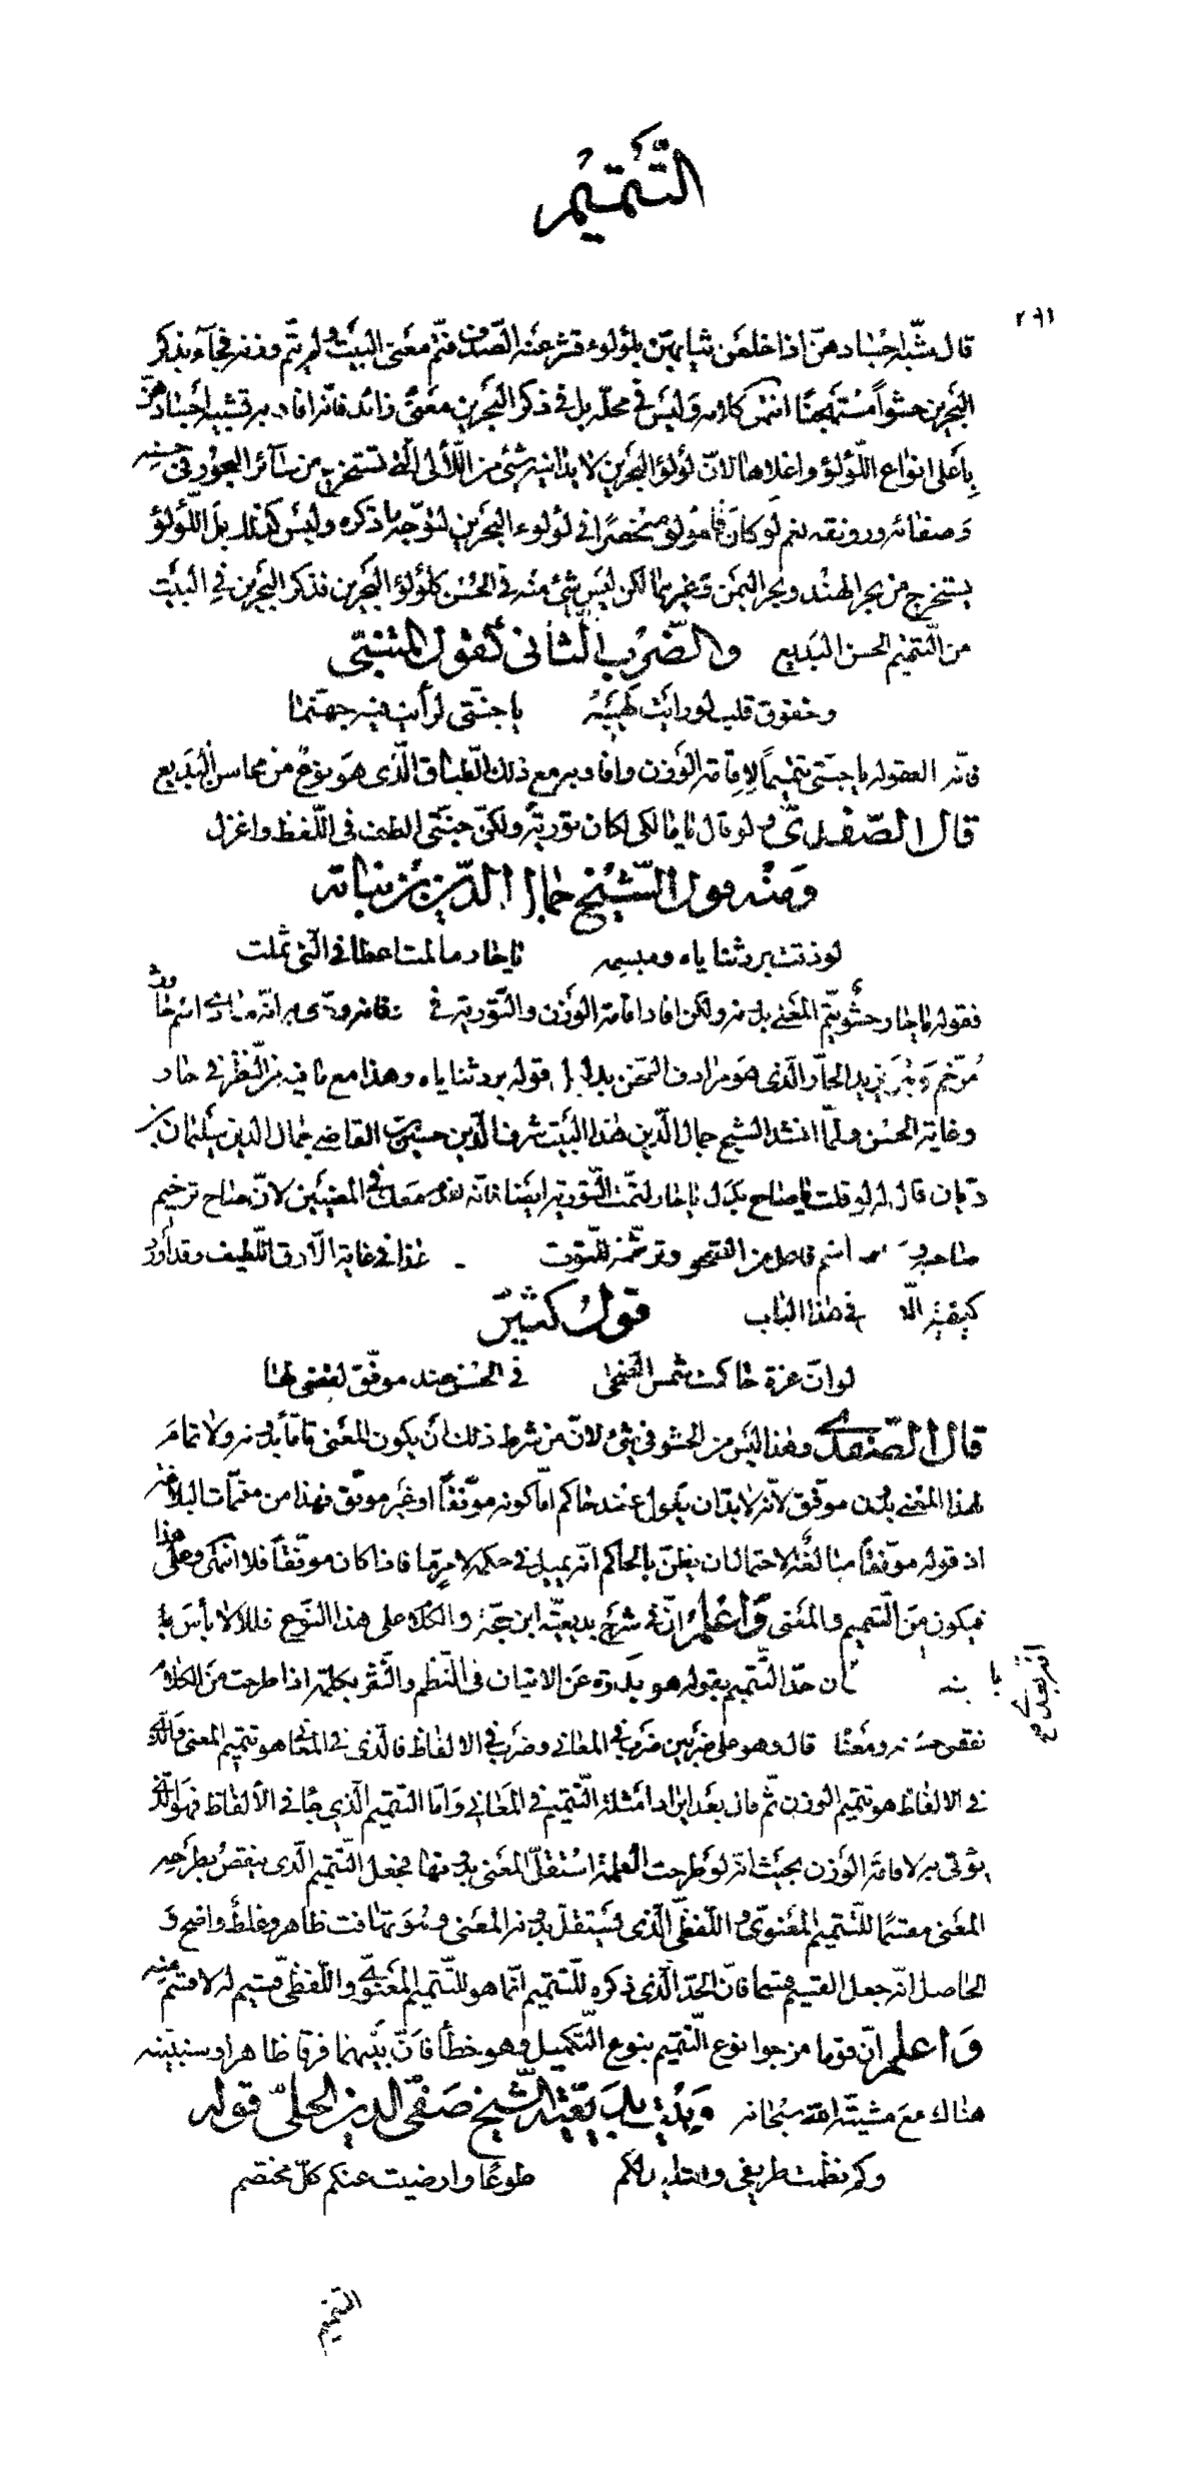 التتميم
٢٦١
قال شبه اجسادهنّ اذا خلعن ثيابهنّ بلؤلوء قشر عنه الصدف فتمّ معنى البيت ولم يتمّ وزنه فجآء بذكر
البحرين حشواً مستهجنًا انتهى كلامه وليس في محلّه بل في ذكر البحرين معنىً زائد فانّه افاد به تشبيه اجسادهنّ
باعلى انواع اللّؤلؤ واغلاها لانّ لؤلؤ البحرين لا يدانيه شئ من اللّألى الّتى تستخرج من سآئر البحور في حسنه
وصفائه ورونقه نعم لو كان اللؤلؤ منحصرًا في لؤلوء البحرين لتوجّه ما ذكره وليس كذلك بل اللّؤلؤ
يستخرج من بحر الهند وبحر اليمن وغيرهما لكن ليس شئ منه في الحسن كلؤلؤ البحرين فذكر البحرين في البيت
من التّتميم الحسن البديع والضّرب الثّانى كقول المتنبّى
وخفوق قلب لو رايت لهيبه يا جنّتى لرأيت فيه جهنّما
فانّه بقوله يا جنّتى تتميمًا لاقامة الوزن وافاد به مع ذلك الطّباق الّذى هو نوع من محاسن البديع
قال الصّفدىّ ولو قال يا مالكى لكان تورية ولكن جنّتى الطف في اللّفظ واغزل
ومنه قول الشّيخ جمال الدّين بن نباته
لو ذقت برد ثناياه ومبسمه يا حار ما لمت اعطافى الّتى ثملت
فقوله يا حار حشو يتمّ المعنى بدونه ولكن افاد اقامة الوزن والتّورية في اسم حارث
مرخّم وبين يديه الحارّ الّذى هو مرادف السّخن بدليل قوله برد ثناياه وهذا مع ما فيه من النّظر في حار
وغاية الحسن ولمّا انشد الشيخ جمال الدّين هذا البيت شرف الدّين حسين بن القاضى جمال الدين سليمان بن
ريّان قال له لو قلت يا صاح بدل يا حار لتمّت التّورية ايضًا فانّه في المعنيين لانّ صاح ترخيم
صاحب اسم فاعل من الصّحو غذا في غاية الذّوق اللّطيف وقد أورد
في هذا الباب قول كثيّر
لو انّ عزة حاكمت شمس الضّحى في الحسن عند موفّق لقضى لها
قال الصّفدى وهذا ليس من الحشو في شئ لانّ من شرط ذلك أن يكون المعنى تامّاً بدونه ولا تمام
لهذا المعنى بدون موفّق لانّه لا بدّ ان يقول عند حاكم امّا كونه موفّقاً او غير موفّق فهذا من متمّمات البلاغة
اذ قوله موفّقاً مبالغة لاحتمال ان يظنّ بالحاكم انّه يميل في حكمه لامر ما فاذا كان موفّقاً فلا انتهى وعلى هذا
فيكون من التّتميم في المعنى واعلم انّ في شرح بديعيّة ابن حجّة والكلام على هذا النّوع خللا لا بأس با
ان حدّ التّتميم بقوله هو عبارة عن الاتيان في النّظم والنّثر بكلمة اذا طرحت من الكلام
نقص حسنه ومعناه قال وهو على ضربين ضرب في المعانى وضرب في الالفاظ فالّذى في المعانى هو تتميم المعنى والّذى
في الالفاظ هو تتميم الوزن ثمّ قال بعد ايراد امثلة التّتميم في المعانى وامّا التّتميم الّذى جاء في الألفاظ فهو الّذى
يؤتى به لاقامة الوزن بحيث انّه لو طرحت الكلمة استقلّ المعنى بدونها فجعل التّتميم الّذى ينقص بطرحه
المعنى مقسمًا للتّتميم المعنوىّ واللّفظىّ الّذى يستقلّ بدونه المعنى وهو تهافت ظاهر وغلط واضح و
الحاصل انّه جعل القسيم مقسما فانّ الحدّ الّذى ذكره للتّتميم انّما هو للتّتميم المعنوىّ واللّفظىّ قسيم له لا قسم منه
واعلم انّ قوما مزجوا نوع التّتميم بنوع التّكميل وهو خطأ فانّ بينهما فرقا ظاهرا وسنبيّنه
هناك مع مشيّة الله سبحانه وبيت بديعيّة الشّيخ صفىّ الدين الحلىّ قوله
وكم بذلت طريفى والتليد لكم طوعًا وارضيت عنكم كلّ مختصم
التتميم